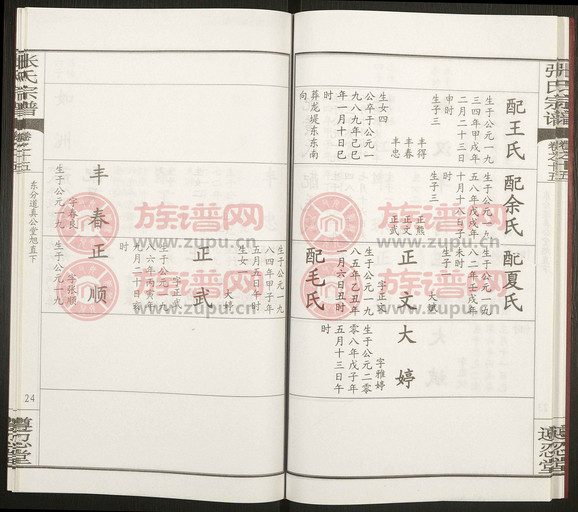 張氏宗譜
卷之十五
遺忍堂
配王氏
生于公元一九
三四年甲戌年
二月二十三日
申时
生子三
丰得
丰春
丰忠
生女四
公卒于公元一
九八九年己巳
年一月十日巳
时
葬龙堤东东南
向
配余氏
生于公元一九
五八年戊戌年
十月十八日子
时
生子三
正熊
正文
正武
配夏氏
生于公元一九
八二年壬戌年
未时
生子一
大斌
正文
字正宋
生于公元一九
八五年乙丑年
一月六日丑时
配毛氏
大婷
字雅婷
生于公元二零
零八年戊子年
五月十三日午
时
生于公元一九
八四年甲子年
五月五日午时
生女一
大婷
正武
字正武
生于公元一九
八六年丙寅年
九月二十日亥
时
丰春
字春良
生于公元一九
正顺
字张顺
生于公元一九
东分道真公堂旭直下
張氏宗譜
卷之十五
24
遺忍堂
族谱网
www.zupu.cn
族谱网
www.zupu.cn
族谱网
www.zupu.cn
族谱网
www.zupu.cn